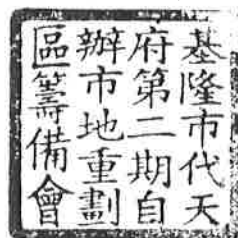 基隆市代天
府第二期自
辦市地重劃
區籌備會